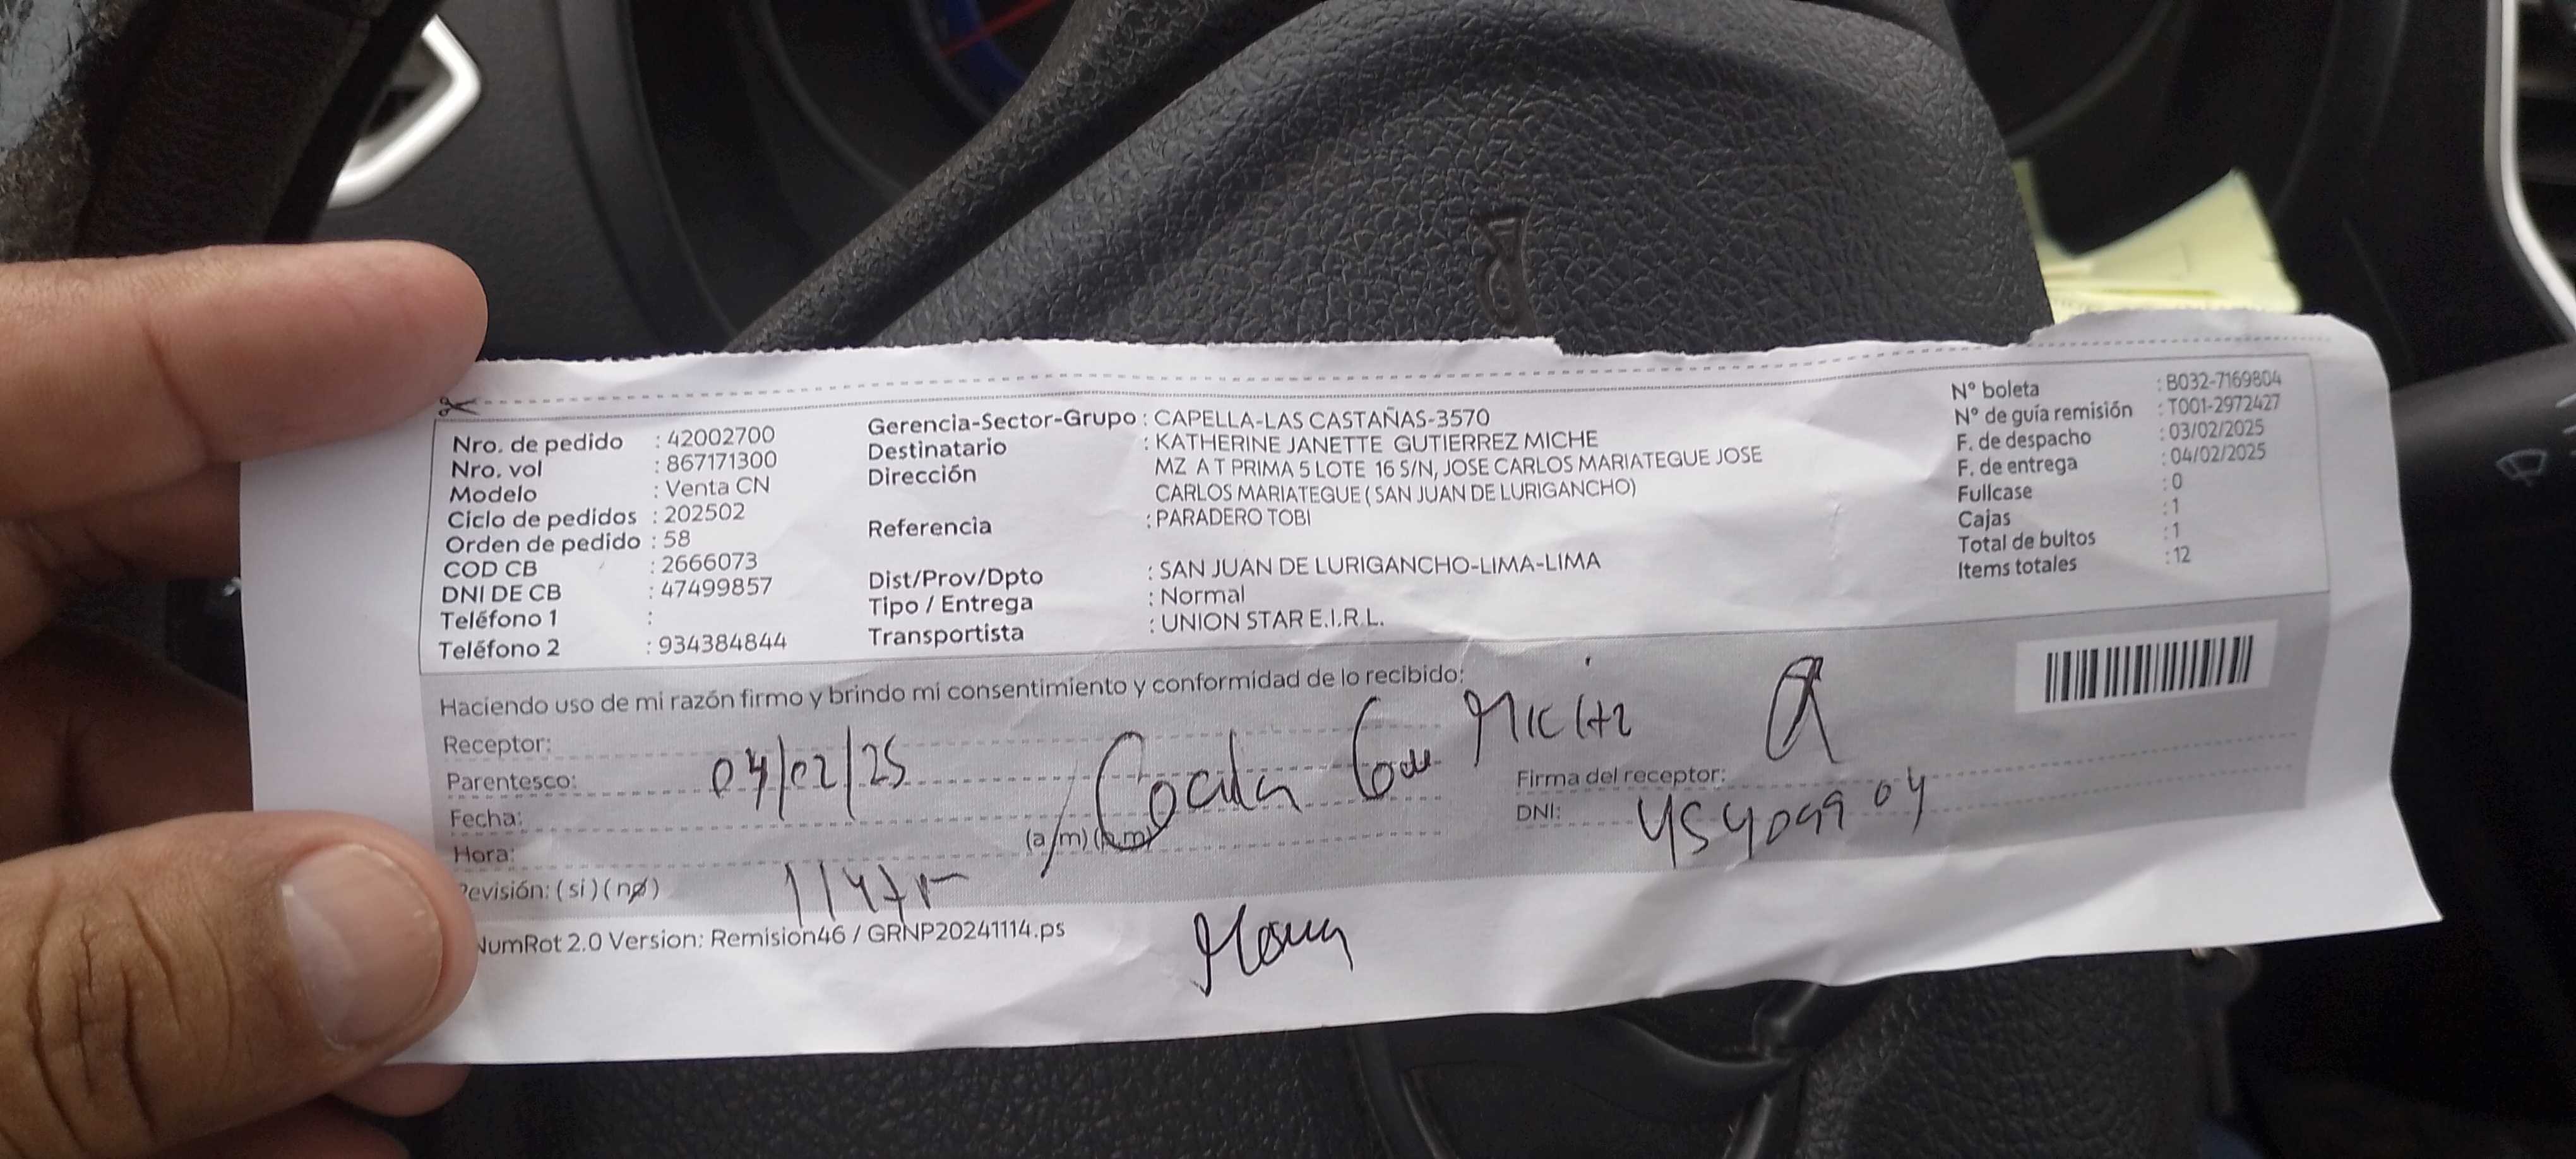 Nro. de pedido : 42002700
Nro. vol : 867171300
Modelo : Venta CN
Ciclo de pedidos : 202502
Orden de pedido : 58
COD CB : 2666073
DNI DE CB : 47499857
Teléfono 1 :
Teléfono 2 : 934384844
Gerencia-Sector-Grupo : CAPELLA-LAS CASTAÑAS-3570
Destinatario : KATHERINE JANETTE GUTIERREZ MICHE
Dirección MZ A T PRIMA 5 LOTE 16 S/N, JOSE CARLOS MARIATEGUE JOSE
CARLOS MARIATEGUE ( SAN JUAN DE LURIGANCHO)
Referencia : PARADERO TOBI
Dist/Prov/Dpto : SAN JUAN DE LURIGANCHO-LIMA-LIMA
Tipo / Entrega : Normal
Transportista : UNION STAR E.I.R.L.
N° boleta : B032-7169804
N° de guía remisión : T001-2972427
F. de despacho : 03/02/2025
F. de entrega : 04/02/2025
Fullcase : 0
Cajas : 1
Total de bultos : 1
Items totales : 12
Haciendo uso de mi razón firmo y brindo mi consentimiento y conformidad de lo recibido:
Receptor:
Parentesco: 04/02/25
Fecha:
Hora: (a/m) (p.m)
Revisión: ( si ) ( no )
Firma del receptor:
DNI: 45409904
NumRot 2.0 Version: Remision46 / GRNP20241114.ps